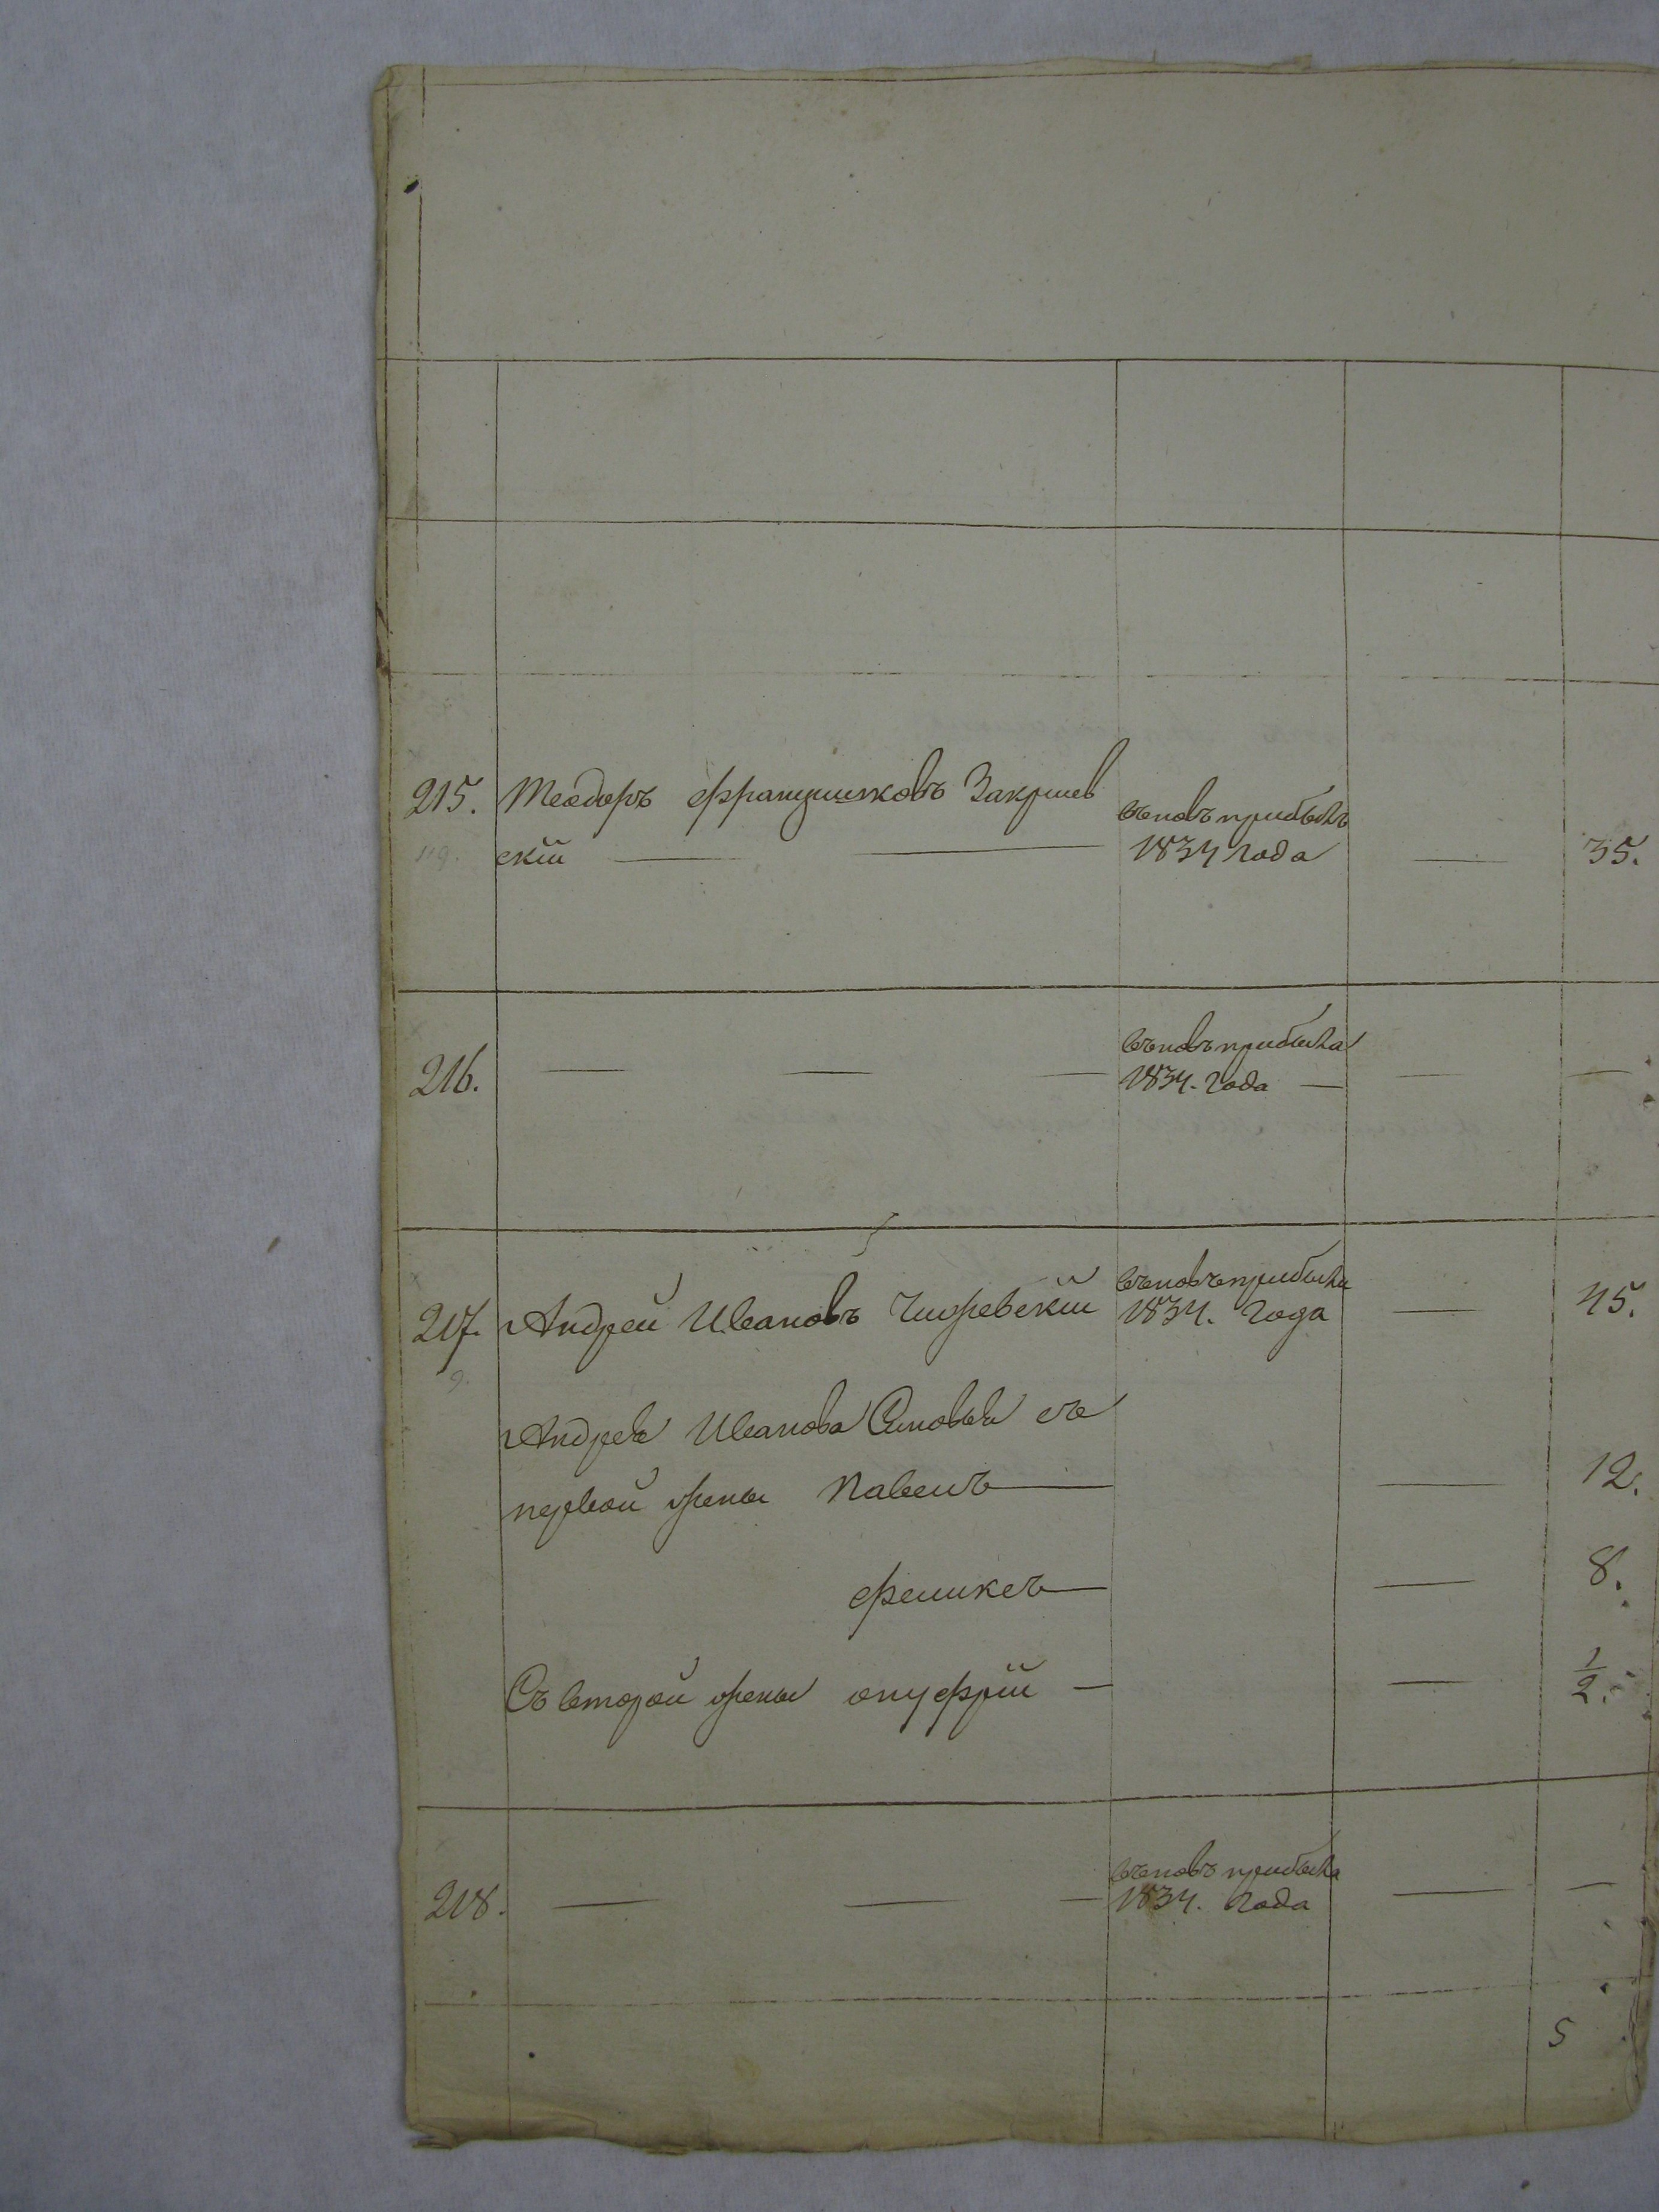 215. Теодоръ Францишковъ Закржев вновъ прибылъ
скій — — 1834 года — 35.
216. — — — вновъ прибыла
1834. года — — —
217. Андрей Ивановъ вновъ прибыли
1834. года — 45.
Андрея Иванова Сыновья съ
первой жены Павелъ — — 12.
Феликсъ — — 8.
Съ второй жены онуфрій — — 1/2.
218. — — — вновъ прибыла
1834. года — —
5